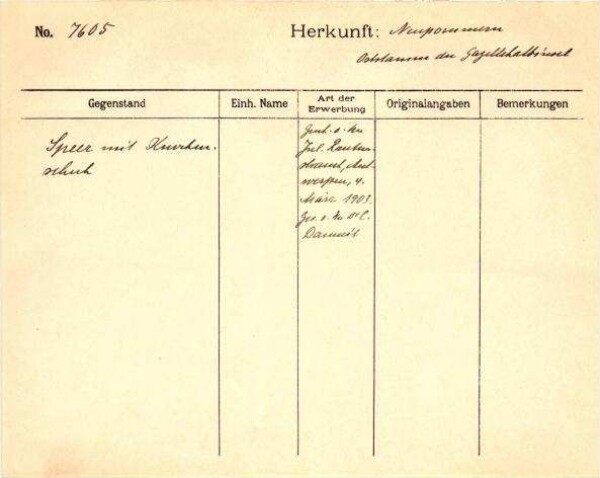 No. 7605
Herkunft: Neupommern
Oststamm der Gazellehalbinsel
Gegenstand
Einh. Name
Art der
Erwerbung
Originalangaben
Bemerkungen
Speer mit Knochen-
schuh
Gesch. v. Hrn
Jul. Rauten-
strauch, Ant-
werpen, 4.
März 1903.
Ges. v. Hrn Dr C.